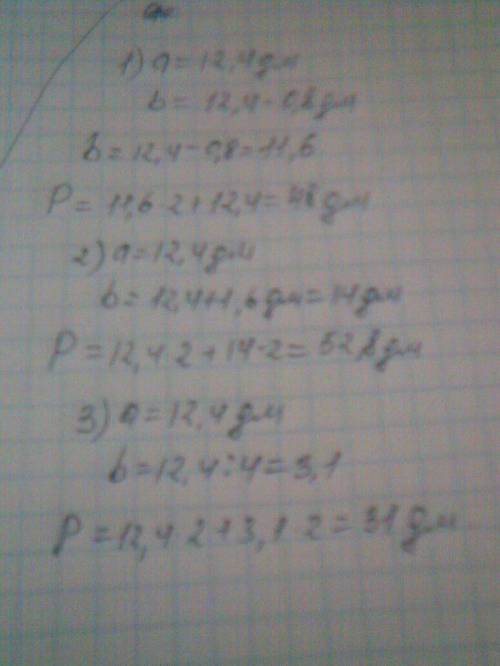 1) a = 12,4 дм
b = 12,4 - 0,8 дм
b = 12,4 - 0,8 = 11,6
P = 11,6 2 + 12,4 = 48 дм
2) a = 12,4 дм
b = 12,4+1,6 дм = 14 дм
P = 12,4 2 + 14 · 2 = 52,8 дм
3) a = 12,4 дм
b = 12,4 : 4 = 3,1
P = 12,4 2 + 3,1 2 = 31 дм